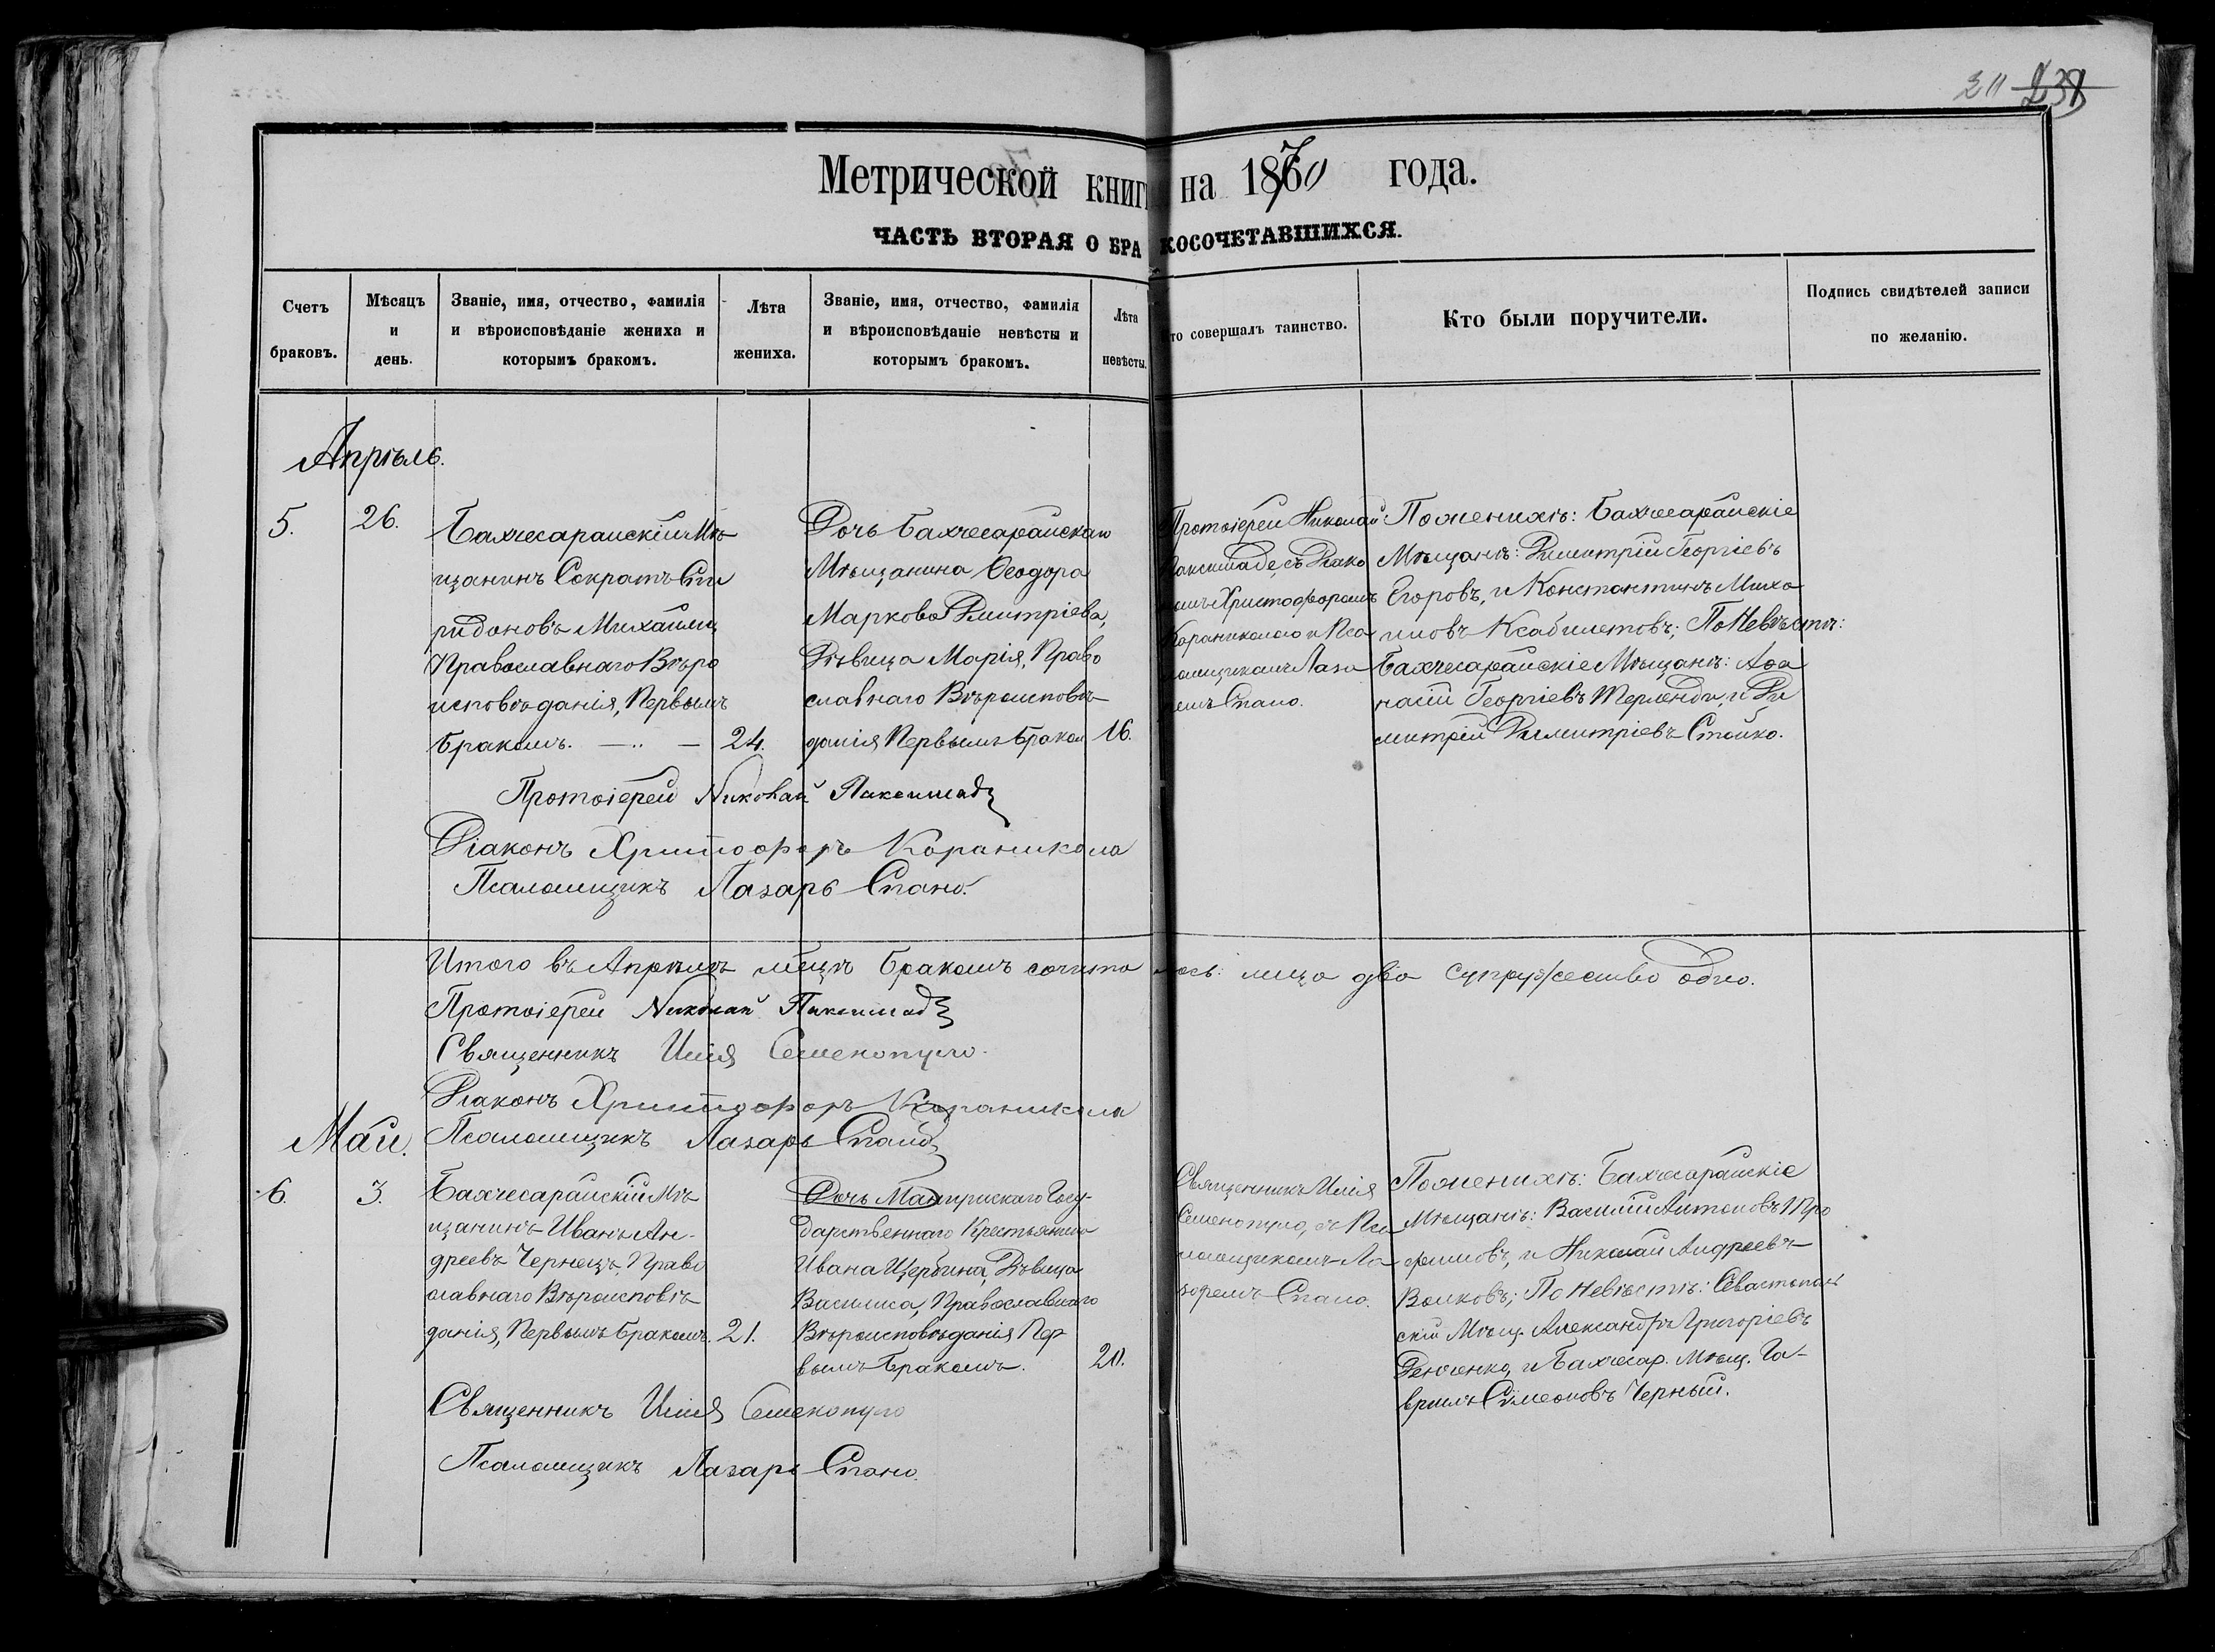 211 238
Метрической книги на 1870 года.
ЧАСТЬ ВТОРАЯ О БРАКОСОЧЕТАВШИХСЯ.
Счетъ
браковъ.
Мѣсяцъ
и
день.
Званіе, имя, отчество, фамилія
и вѣроисповѣданіе жениха и
которымъ бракомъ.
Лѣта
жениха.
Званіе, имя, отчество, фамилія
и вѣроисповѣданіе невѣсты и
которымъ бракомъ.
Лѣта
невѣсты.
то совершалъ таинство.
Кто были поручители.
Подпись свидѣтелей записи
по желанію.
Апрѣль.
5.
26.
Бахчесарайскій Мѣ
щанинъ Сократъ Спи
ридоновъ Михайлиц
Православнаго Вѣро
исповѣданія, Первымъ
Бракомъ. — „ —
24.
Дочь Бахчесарайскаго
Мѣщанина Ѳеодора
Маркова Дмитріева,
Дѣвица Марія, Право
славнаго Вѣроисповѣ
данія Первымъ Браком
16.
Протоіерей Николай
Паксимаде, съ Діако
номъ Христофоромъ
Караниколаю и Пса
ломщикомъ Лаза
ремъ Спано.
По женихѣ: Бахчесарайскіе
Мѣщане: Димитрій Георгіевъ
Егоровъ, и Константинъ Миха
иловъ Ксабилетовъ; По Невѣстѣ:
Бахчесарайскіе Мѣщане: Аѳа
насій Георгіевъ Терленди, и Ди
митрій Димитріевъ Стойко.
Протоіерей Николай Паксимад
Діаконъ Христофоръ Караникола
Псаломщикъ Лазарь Спано.
Итого въ Апрѣлѣ мѣцѣ бракомъ сочеталось: лица два супружество одно.
Протоіерей Николай Паксимад
Священникъ Илія Семенопуло.
Діаконъ Христофоръ Караникола
Псаломщикъ Лазарь Спано
Май.
6.
3.
Бахчесарайскій Мѣ
щанинъ Иванъ Ан-
дреевъ Чернецъ, Право
славнаго Вѣроисповѣ
данія, Первымъ Бракомъ.
21.
Дочь Мангушскаго Госу-
дарственнаго Крестьянина
Ивана Щербина, Дѣвица
Василиса, Православнаго
Вѣроисповѣданія Пер
вымъ Бракомъ.
20.
Священникъ Илія
Семенопуло, съ Пса
ломщикомъ Ла
заремъ Спано.
По женихѣ: Бахчесарайскіе
Мѣщане: Василій Антоновъ Тро
фимовъ, и Николай Андреевъ
Волковъ; По Невѣстѣ: Севастополь
скій Мѣщ. Александръ Григоріевъ
Демченко, и Бахчесар. Мѣщ. Га-
врилъ Симеоновъ Черный.
Священникъ Илія Семенопуло
Псаломщикъ Лазарь Спано.